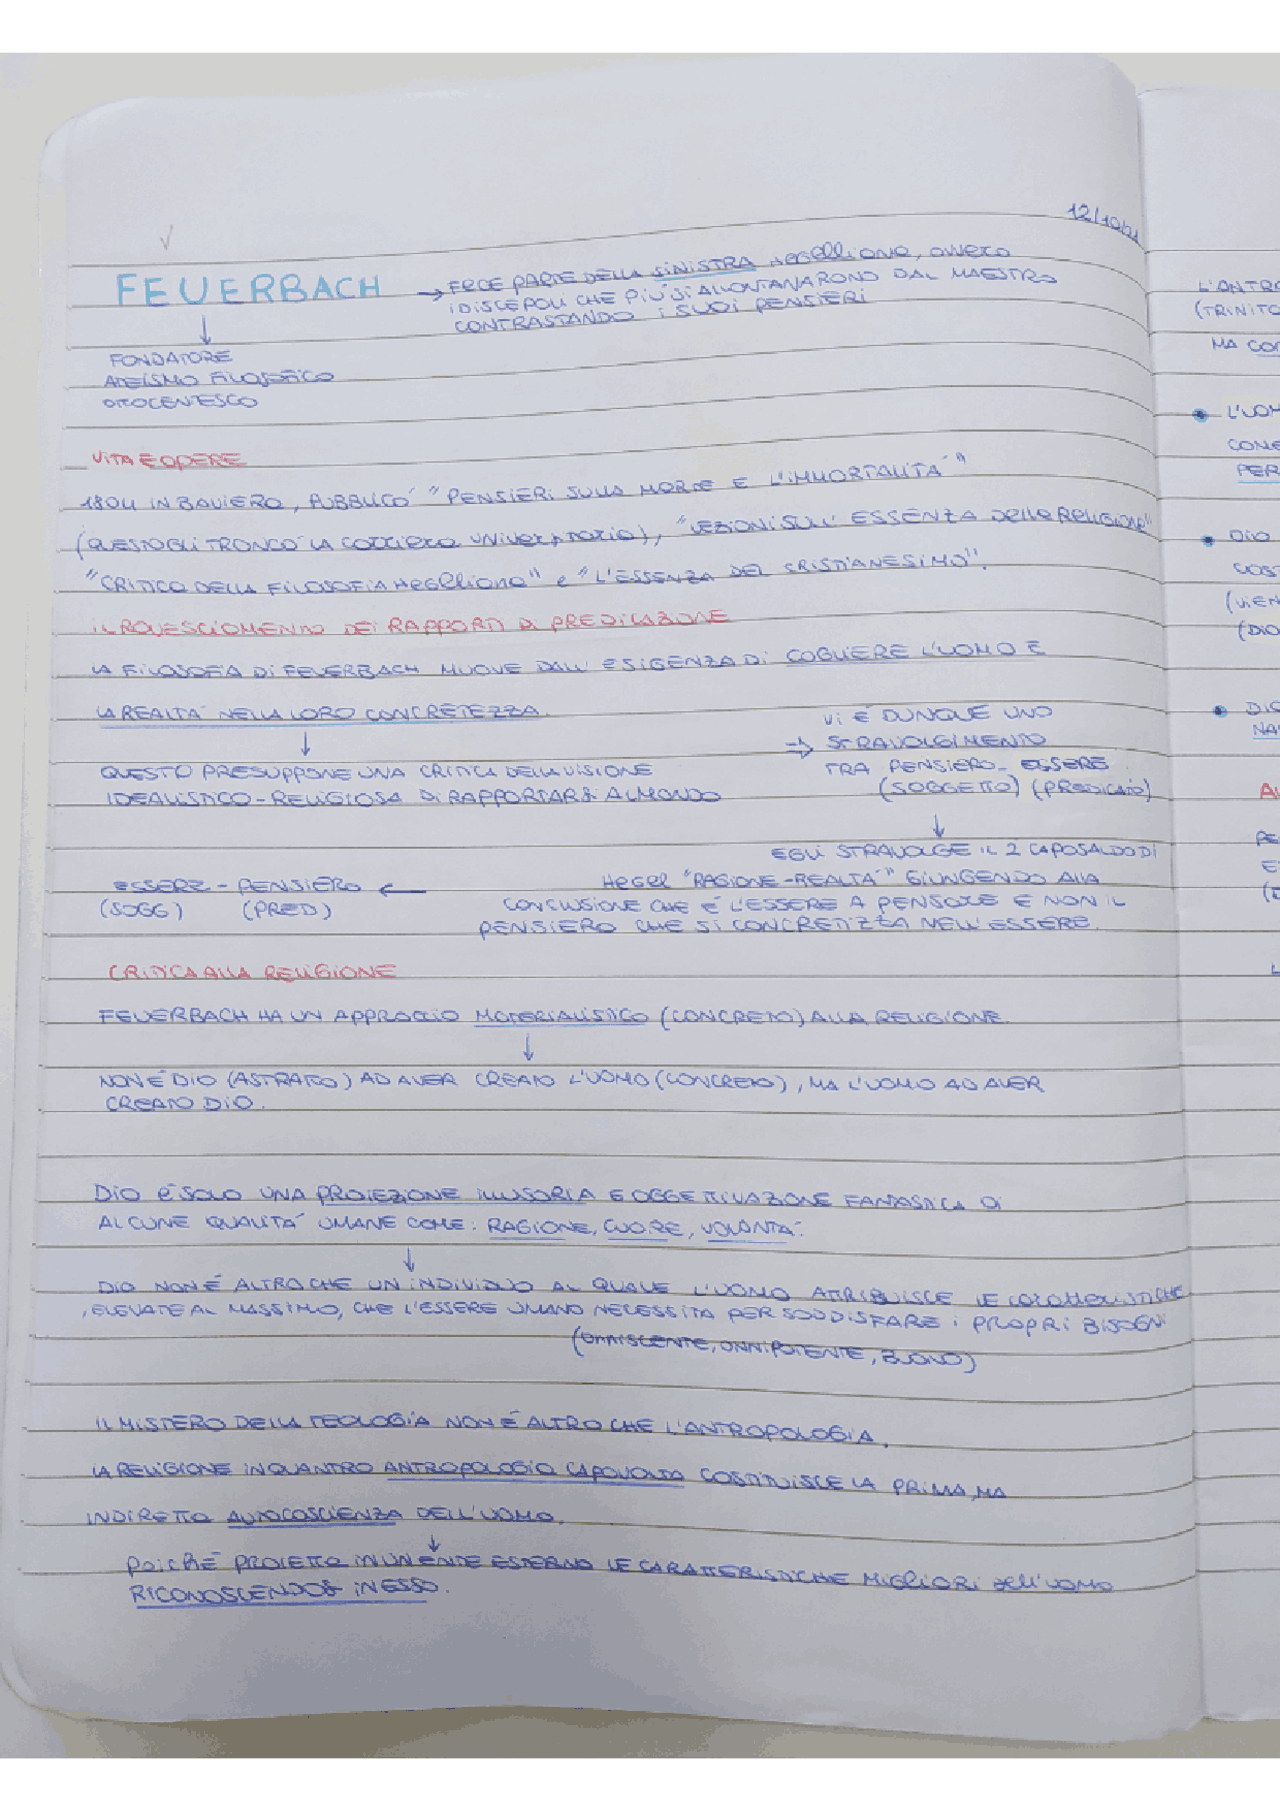 12/10/21
FEUERBACH → FECE PARTE DELLA SINISTRA HEGELLIANA, OVVERO
I DISCEPOLI CHE PIÙ SI ALLONTANARONO DAL MAESTRO
CONTRASTANDO I SUOI PENSIERI
↓
FONDATORE
ATEISMO FILOSOFICO
OTTOCENTESCO
VITA E OPERE
1804 IN BAVIERA, PUBBLICÒ "PENSIERI SULLA MORTE E L'IMMORTALITÀ"
(QUESTO GLI TRONCÒ LA CARRIERA UNIVERSITARIA), "LEZIONI SULL' ESSENZA DELLA RELIGIONE"
"CRITICA DELLA FILOSOFIA HEGELLIANA" e "L'ESSENZA DEL CRISTIANESIMO".
IL ROVESCIAMENTO DEI RAPPORTI DI PREDICAZIONE
LA FILOSOFIA DI FEUERBACH MUOVE DALL' ESIGENZA DI COGLIERE L'UOMO E
LA REALTÀ NELLA LORO CONCRETEZZA.
↓
QUESTO PRESUPPONE UNA CRITICA DELLA VISIONE
IDEALISTICO-RELIGIOSA DI RAPPORTARSI AL MONDO
⇒ VI È DUNQUE UNO
STRAVOLGIMENTO
TRA PENSIERO - ESSERE
(SOGGETTO) (PREDICATO)
↓
EGLI STRAVOLGE IL 2 CAPOSALDO DI
HEGEL "RAGIONE-REALTÀ" GIUNGENDO ALLA
CONCLUSIONE CHE È L'ESSERE A PENSARE E NON IL
PENSIERO CHE SI CONCRETIZZA NELL' ESSERE.
ESSERE - PENSIERO ←
(SOGG) (PRED)
CRITICA ALLA RELIGIONE
FEUERBACH HA UN APPROCCIO MATERIALISTICO (CONCRETO) ALLA RELIGIONE.
↓
NON È DIO (ASTRATTO) AD AVER CREATO L'UOMO (CONCRETO), MA L'UOMO AD AVER
CREATO DIO.
DIO È SOLO UNA PROIEZIONE ILLUSORIA E OGGETTIVAZIONE FANTASTICA DI
ALCUNE QUALITÀ UMANE COME: RAGIONE, CUORE, VOLONTÀ.
↓
DIO NON È ALTRO CHE UN INDIVIDUO AL QUALE L'UOMO ATTRIBUISCE LE CARATTERISTICHE
, ELEVATE AL MASSIMO, CHE L'ESSERE UMANO NECESSITA PER SODDISFARE I PROPRI BISOGNI
(ONNISCENTE, ONNIPOTENTE, BUONO)
IL MISTERO DELLA TEOLOGIA NON È ALTRO CHE L'ANTROPOLOGIA.
LA RELIGIONE IN QUANTRO ANTROPOLOGIA CAPOVOLTA COSTITUISCE LA PRIMA, MA
INDIRETTA AUTOCOSCIENZA DELL'UOMO.
↓
POICHÈ PROIETTA IN UN ENTE ESTERNO LE CARATTERISTICHE MIGLIORI DELL'UOMO
RICONOSCENDOSI IN ESSO.
L'ANTRO
(TRINITÀ
MA CO
L'UOM
CONC
PER
DIO
COST
(VIEN
(DIO
DIO
NA
AL
PE
E
L